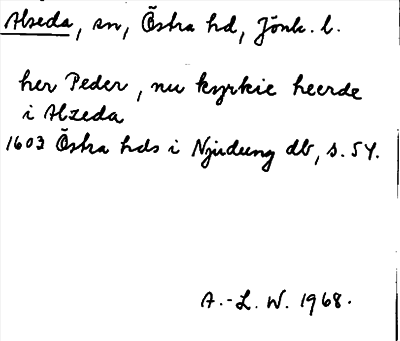 Alseda, sn, Östra hd, Jönk. l.
her Peder, nu kyrkie heerde
i Alzeda
1603 Östra hds i Njudung db, s. 54.
A.-L. W. 1968.